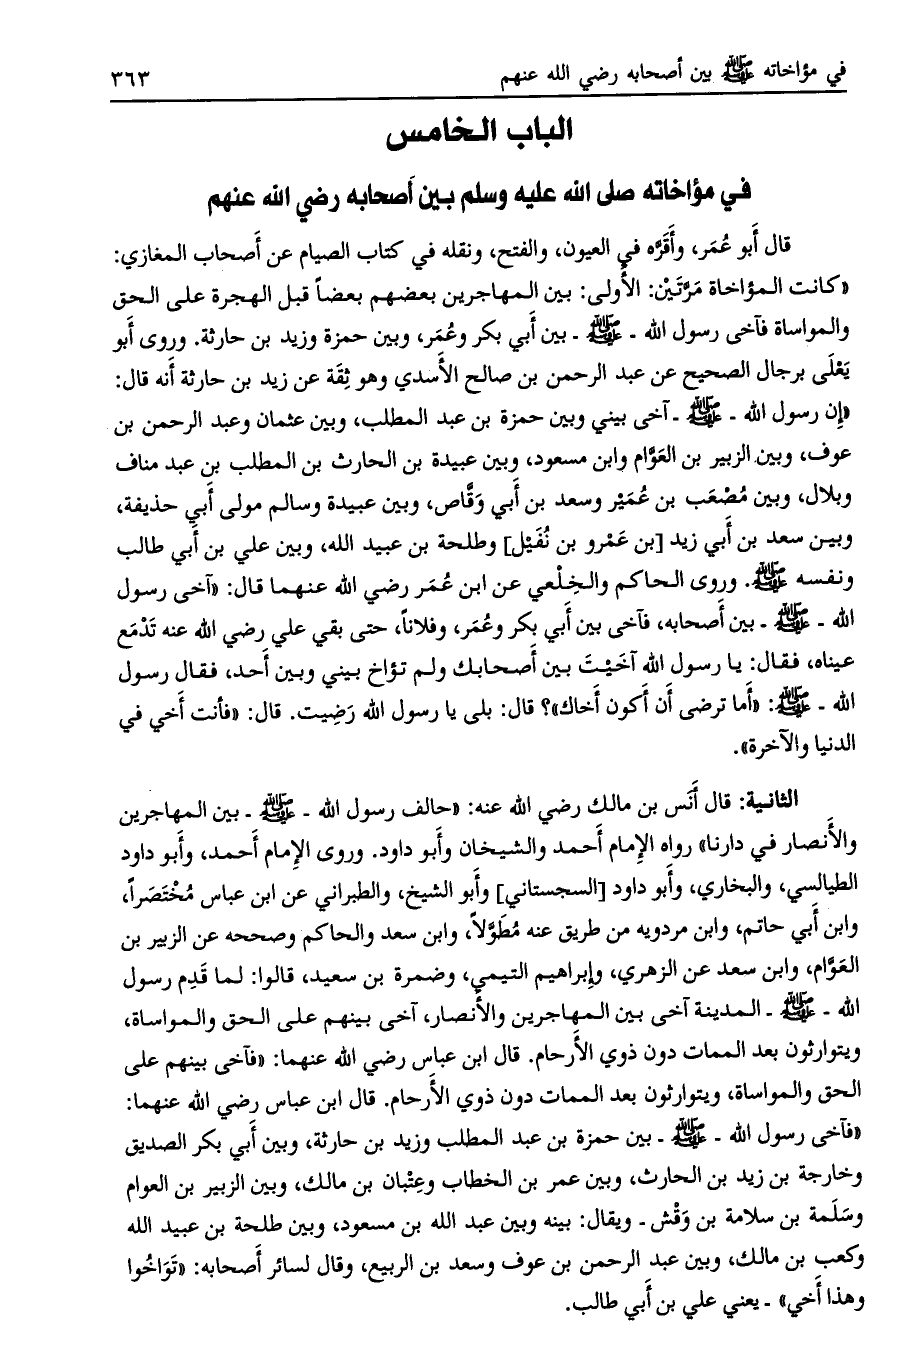 في مؤاخاته ﷺ بين أصحابه رضي الله عنهم ٣٦٣
الباب الخامس
في مؤاخاته صلى الله عليه وسلم بين أصحابه رضي الله عنهم
قال أَبو عُمَر، وأَقَرَّه في العيون، والفتح، ونقله في كتاب الصيام عن أَصحاب المغازي:
«كانت المؤاخاة مَرَّتَيْن: الأُولى: بين المهاجرين بعضهم بعضاً قبل الهجرة على الحق
والمواساة فآخى رسول الله ـ ﷺ ـ بين أَبي بكر وعُمَر، وبين حمزة وزيد بن حارثة. وروى أَبو
يَعْلَى برجال الصحيح عن عبد الرحمن بن صالح الأَسدي وهو ثِقَة عن زيد بن حارثة أنه قال:
«إن رسول الله ـ ﷺ ـ آخى بيني وبين حمزة بن عبد المطلب، وبين عثمان وعبد الرحمن بن
عوف، وبين الزبير بن العَوَّام وابن مسعود، وبين عبيدة بن الحارث بن المطلب بن عبد مناف
وبلال، وبين مُصْعَب بن عُمَيْر وسعد بن أَبي وَقَّاص، وبين عبيدة وسالم مولى أَبي حذيفة،
وبين سعد بن أَبي زيد [بن عَمْرو بن نُفَيْل] وطلحة بن عبيد الله، وبين علي بن أَبي طالب
ونفسه ﷺ. وروى الحاكم والخِلْعي عن ابن عُمَر رضي الله عنهما قال: «آخى رسول
الله ـ ﷺ ـ بين أَصحابه، فآخى بين أَبي بكر وعُمَر، وفلاناً، حتى بقي علي رضي الله عنه تَدْمَع
عيناه، فقال: يا رسول الله آخَيْتَ بين أَصحابك ولم تؤاخ بيني وبين أَحد، فقال رسول
الله ـ ﷺ: «أَما ترضى أَن أَكون أَخاك»؟ قال: بلى يا رسول الله رَضِيت. قال: «فأنت أَخي في
الدنيا والآخرة».
الثانية: قال أَنَس بن مالك رضي الله عنه: «حالف رسول الله ـ ﷺ ـ بين المهاجرين
والأَنصار في دارنا» رواه الإمام أَحمد والشيخان وأَبو داود. وروى الإمام أَحمد، وأَبو داود
الطيالسي، والبخاري، وأَبو داود [السجستاني] وأَبو الشيخ، والطبراني عن ابن عباس مُخْتَصَراً،
وابن أَبي حاتم، وابن مردويه من طريق عنه مُطَوَّلاً، وابن سعد والحاكم وصححه عن الزبير بن
العَوَّام، وابن سعد عن الزهري، وإبراهيم التيمي، وضمرة بن سعيد، قالوا: لما قَدِم رسول
الله ـ ﷺ ـ المدينة آخى بين المهاجرين والأَنصار، آخى بينهم على الحق والمواساة،
ويتوارثون بعد الممات دون ذوي الأَرحام. قال ابن عباس رضي الله عنهما: «فآخى بينهم على
الحق والمواساة، ويتوارثون بعد الممات دون ذوي الأَرحام. قال ابن عباس رضي الله عنهما:
«فآخى رسول الله ـ ﷺ ـ بين حمزة بن عبد المطلب وزيد بن حارثة، وبين أَبي بكر الصديق
وخارجة بن زيد بن الحارث، وبين عمر بن الخطاب وعِتْبان بن مالك، وبين الزبير بن العوام
وسَلَمة بن سلامة بن وَقْش ـ ويقال: بينه وبين عبد الله بن مسعود، وبين طلحة بن عبيد الله
وكعب بن مالك، وبين عبد الرحمن بن عوف وسعد بن الربيع، وقال لسائر أَصحابه: «تَوَاخُوا
وهذا أَخي» ـ يعني علي بن أَبي طالب.